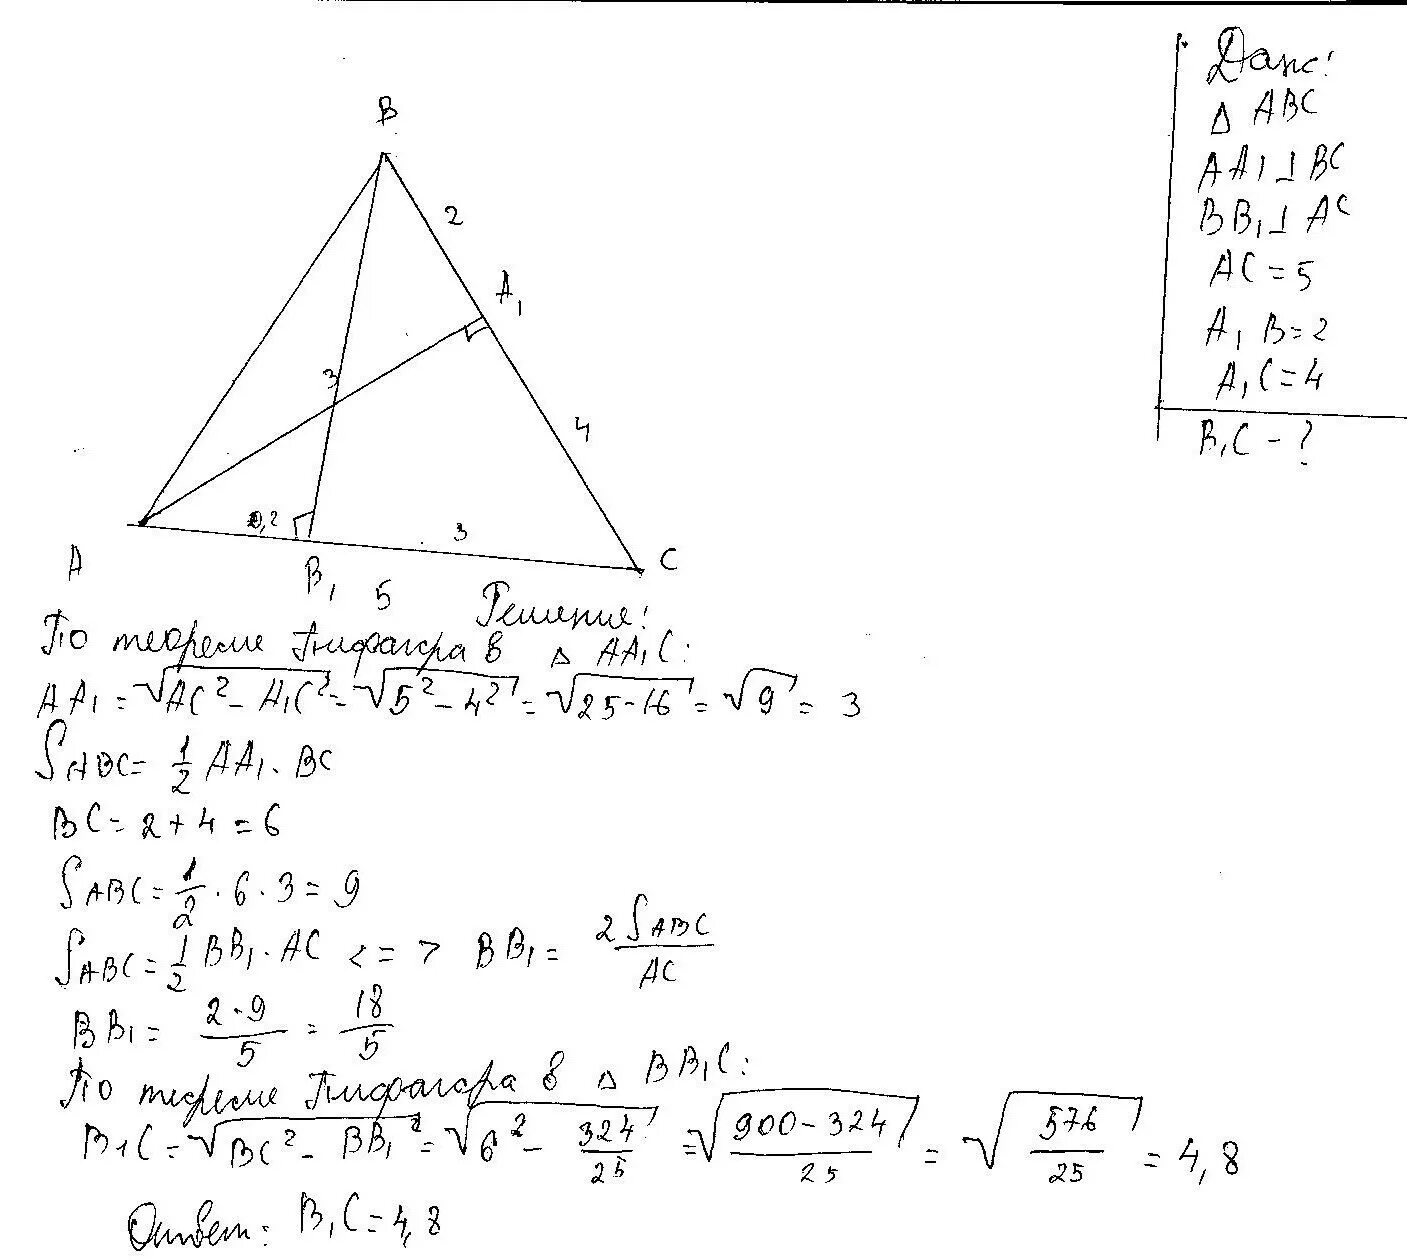 Дано:
Δ ABC
AA₁ ⊥ BC
BB₁ ⊥ AC
AC = 5
A₁B = 2
A₁C = 4
B₁C - ?
B
2
A₁
3
4
0,2
3
A
B₁
5
C
Решение:
По теореме Пифагора в Δ AA₁C:
AA₁ = √(AC² - A₁C²) = √(5² - 4²) = √(25 - 16) = √9 = 3
S ABC = 1/2 AA₁ · BC
BC = 2 + 4 = 6
S ABC = 1/2 · 6 · 3 = 9
S ABC = 1/2 BB₁ · AC <=> BB₁ = 2 S ABC / AC
BB₁ = 2·9/5 = 18/5
По теореме Пифагора в Δ BB₁C:
B₁C = √(BC² - BB₁²) = √(6² - 324/25) = √((900 - 324)/25) = √(576/25) = 4,8
Ответ: B₁C = 4,8